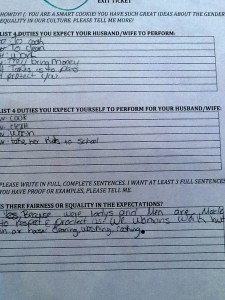 EXIT TICKET
HOWDY! (: YOU ARE A SMART COOKIE! YOU HAVE SUCH GREAT IDEAS ABOUT THE GENDER
EQUALITY IN OUR CULTURE. PLEASE TELL ME MORE!
LIST 4 DUTIES YOU EXPECT YOUR HUSBAND/WIFE TO PERFORM:
To cook
To clean
work
bring money
protect you
LIST 4 DUTIES YOU EXPECT YOURSELF TO PERFORM FOR YOUR HUSBAND/WIFE:
cook
clean
take her kids to school
PLEASE WRITE IN FULL, COMPLETE SENTENCES. I WANT AT LEAST 3 FULL SENTENCES
YOU HAVE PROOF OR EXAMPLES, PLEASE TELL ME.
IS THERE FAIRNESS OR EQUALITY IN THE EXPECTATIONS?
Yes, Because were ladys and Men are
to respect & protect us we womans work but
in our house cleaning, washing, cooking.